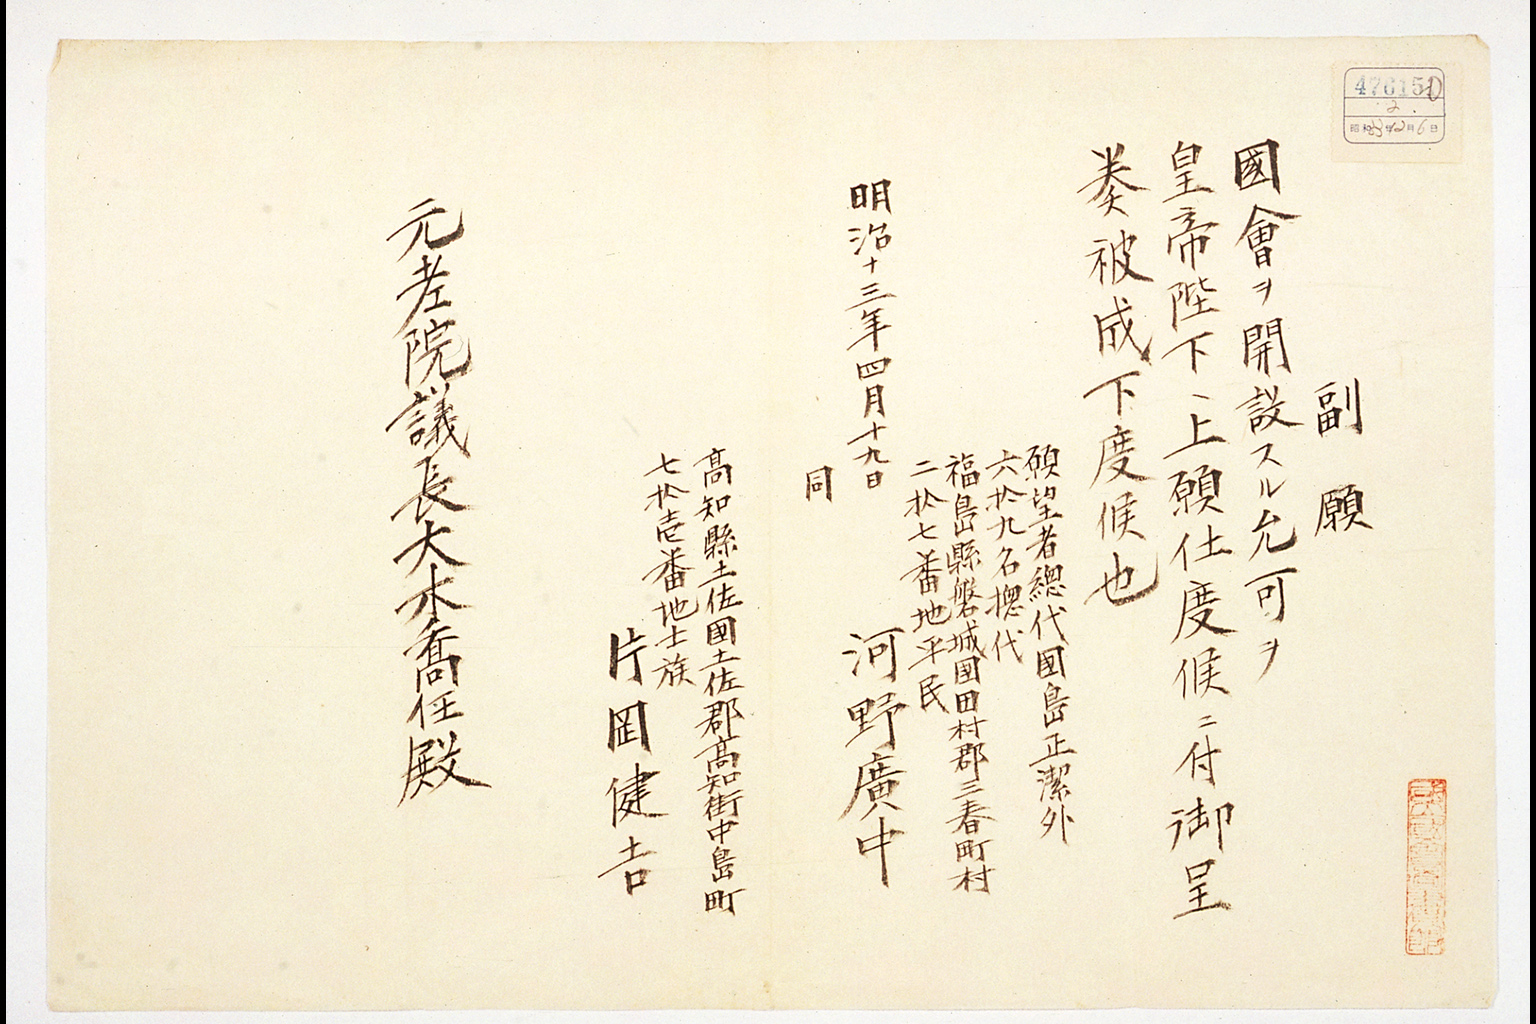 副願
國會ヲ開設スル允可ヲ
皇帝陛下ヘ上願仕度候ニ付御呈
奏被成下度候也
願望者總代國島正潔外
六拾九名摠代
福島縣磐城国田村郡三春町村
二拾七番地平民
河野廣中
明治十三年四月十九日
同
高知縣土佐國土佐郡高知街中島町
七拾壱番地士族
片岡健吉
元老院議長大木喬任殿
476151
2.
昭和 年 月6日